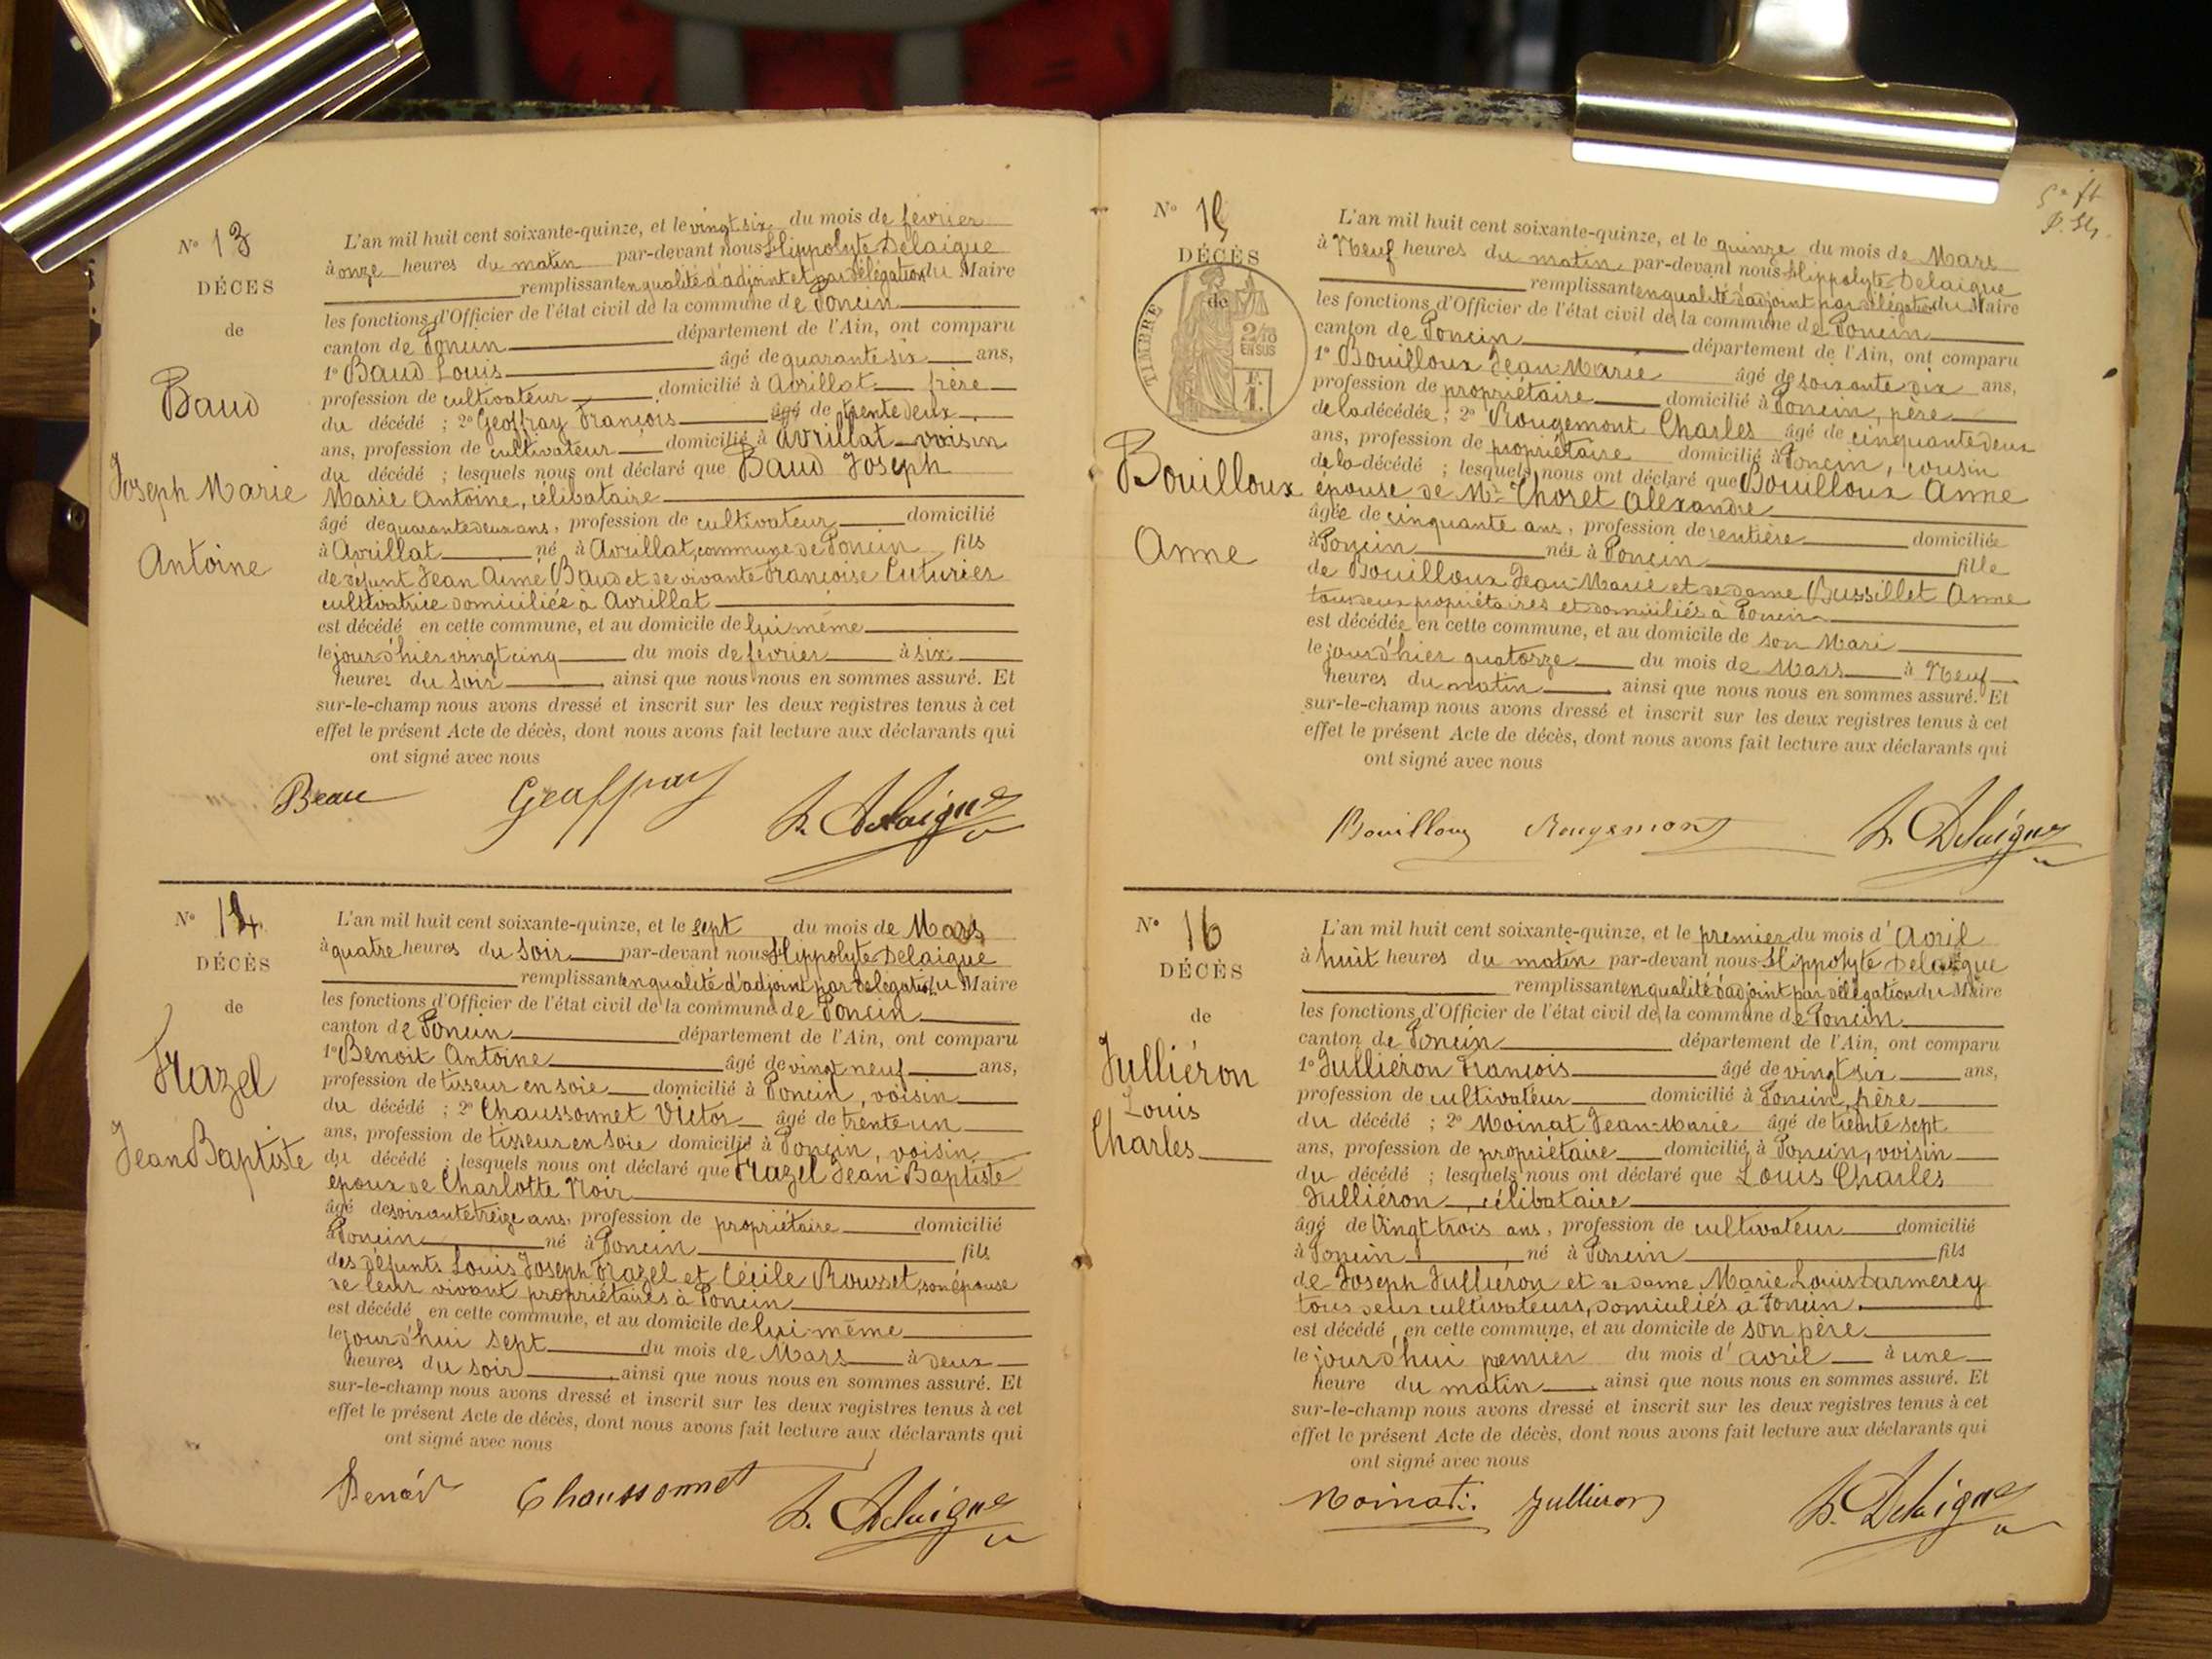 N° 13
DÉCES
de
Baud
Joseph Marie
Antoine
L'an mil huit cent soixante-quinze, et le vingt six du mois de février
à onze heures du matin par-devant nous Hippolyte Delaigue
remplissant en qualité d'adjoint et par délégation du Maire
les fonctions d'Officier de l'état civil de la commune de Poncin
canton de Poncin département de l'Ain, ont comparu
1° Baud Louis âgé de quarante six ans,
profession de cultivateur domicilié à Avrillat frère
du décédé ; 2° Geoffray François âgé de trente deux
ans, profession de cultivateur domicilié à Avrillat voisin
du décédé ; lesquels nous ont déclaré que Baud Joseph
Marie Antoine, célibataire
âgé de quarante deux ans, profession de cultivateur domicilié
à Avrillat né à Avrillat, commune de Poncin fils
de défunt Jean Aimé Baud et de vivante Françoise Cuturier
cultivatrice domiciliée à Avrillat
est décédé en cette commune, et au domicile de lui même
le jour d'hier vingt cinq du mois de février à six
heures du soir ainsi que nous nous en sommes assuré. Et
sur-le-champ nous avons dressé et inscrit sur les deux registres tenus à cet
effet le présent Acte de décès, dont nous avons fait lecture aux déclarants qui
ont signé avec nous
Beau Geoffray h. Delaigue
N° 14
DÉCÈS
de
Frazel
Jean Baptiste
L'an mil huit cent soixante-quinze, et le sept du mois de Mars
à quatre heures du Soir par-devant nous Hippolyte Delaigue
remplissant en qualité d'adjoint par délégation du Maire
les fonctions d'Officier de l'état civil de la commune de Poncin
canton de Poncin département de l'Ain, ont comparu
1° Benoit Antoine âgé de vingt neuf ans,
profession de tisseur en soie domicilié à Poncin, voisin
du décédé ; 2° Chaussonnet Victor âgé de trente un
ans, profession de tisseur en soie domicilié à Poncin, voisin
du décédé ; lesquels nous ont déclaré que Frazel Jean Baptiste
époux de Charlotte Noir
âgé de soixante treize ans, profession de propriétaire domicilié
à Poncin né à Poncin fils
des défunts Louis Joseph Frazel et Cécile Rousset, son épouse
de leur vivant propriétaires à Poncin
est décédé en cette commune, et au domicile de lui-même
le jour d'hui sept du mois de Mars à deux
heures du soir ainsi que nous nous en sommes assuré. Et
sur-le-champ nous avons dressé et inscrit sur les deux registres tenus à cet
effet le présent Acte de décès, dont nous avons fait lecture aux déclarants qui
ont signé avec nous
Benoit Chaussonnet h. Delaigue
N° 15
DÉCÈS
de
TIMBRE
2/10
EN SUS
F.
1.
Bouilloux
Anne
L'an mil huit cent soixante-quinze, et le quinze du mois de Mars
à Neuf heures du matin par-devant nous Hippolyte Delaigue
remplissant en qualité d'adjoint par délégation du Maire
les fonctions d'Officier de l'état civil de la commune de Poncin
canton de Poncin département de l'Ain, ont comparu
1° Bouilloux Jean Marie âgé de soixante dix ans,
profession de propriétaire domicilié à Poncin, père
de la décédée ; 2° Rougemont Charles âgé de cinquante deux
ans, profession de propriétaire domicilié à Poncin, cousin
de la décédé ; lesquels nous ont déclaré que Bouilloux Anne
épouse de Mr Choret Alexandre
âgée de cinquante ans, profession de rentière domiciliée
à Poncin née à Poncin fille
de Bouilloux Jean-Marie et de dame Bussillet Anne
tous deux propriétaires et domiciliés à Poncin
est décédée en cette commune, et au domicile de son Mari
le jour d'hier quatorze du mois de Mars à Neuf
heures du matin ainsi que nous nous en sommes assuré. Et
sur-le-champ nous avons dressé et inscrit sur les deux registres tenus à cet
effet le présent Acte de décès, dont nous avons fait lecture aux déclarants qui
ont signé avec nous
Bouilloux Rougemont h. Delaigue
N° 16
DÉCÈS
de
Julliéron
Louis
Charles
L'an mil huit cent soixante-quinze, et le premier du mois d'Avril
à huit heures du matin par-devant nous Hippolyte Delaigue
remplissant en qualité d'adjoint par délégation du Maire
les fonctions d'Officier de l'état civil de la commune de Poncin
canton de Poncin département de l'Ain, ont comparu
1° Julliéron François âgé de vingt six ans,
profession de cultivateur domicilié à Poncin, frère
du décédé ; 2° Moinat Jean-Marie âgé de trente sept
ans, profession de propriétaire domicilié à Poncin, voisin
du décédé ; lesquels nous ont déclaré que Louis Charles
Julliéron, célibataire
âgé de Vingt trois ans, profession de cultivateur domicilié
à Poncin né à Poncin fils
de Joseph Julliéron et de dame Marie Louis Darmerey
tous deux cultivateurs, domiciliés à Poncin.
est décédé, en cette commune, et au domicile de son père
le jour d'hui premier du mois d'avril à une
heure du matin ainsi que nous nous en sommes assuré. Et
sur-le-champ nous avons dressé et inscrit sur les deux registres tenus à cet
effet le présent Acte de décès, dont nous avons fait lecture aux déclarants qui
ont signé avec nous
Moinat. Julliéron h. Delaigue